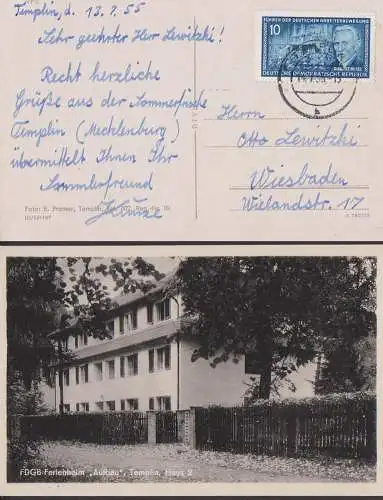 Templin, d. 13.7.55
Sehr geehrter Herr Lewitzki!
Recht herzliche
Grüße aus der Sommerfrische
Templin (Mecklenburg)
übermittelt Ihnen Ihr
Sommerfreund
FÜHRER DER DEUTSCHEN ARBEITERBEWEGUNG
10
DEUTSCHE DEMOKRATISCHE REPUBLIK
b
Herrn
Otto Lewitzki
Wiesbaden
Wielandstr. 17
Foto: E. Templin,
FDGB-Ferienheim „Aufbau", Templin, Haus 2